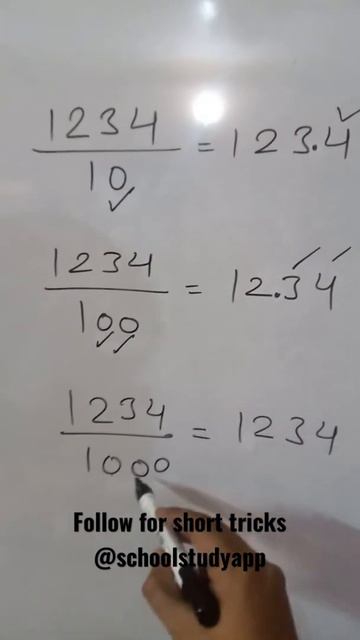 1234/10 = 123.4
1234/100 = 12.34
1234/1000 = 1234
Follow for short tricks
@schoolstudyapp